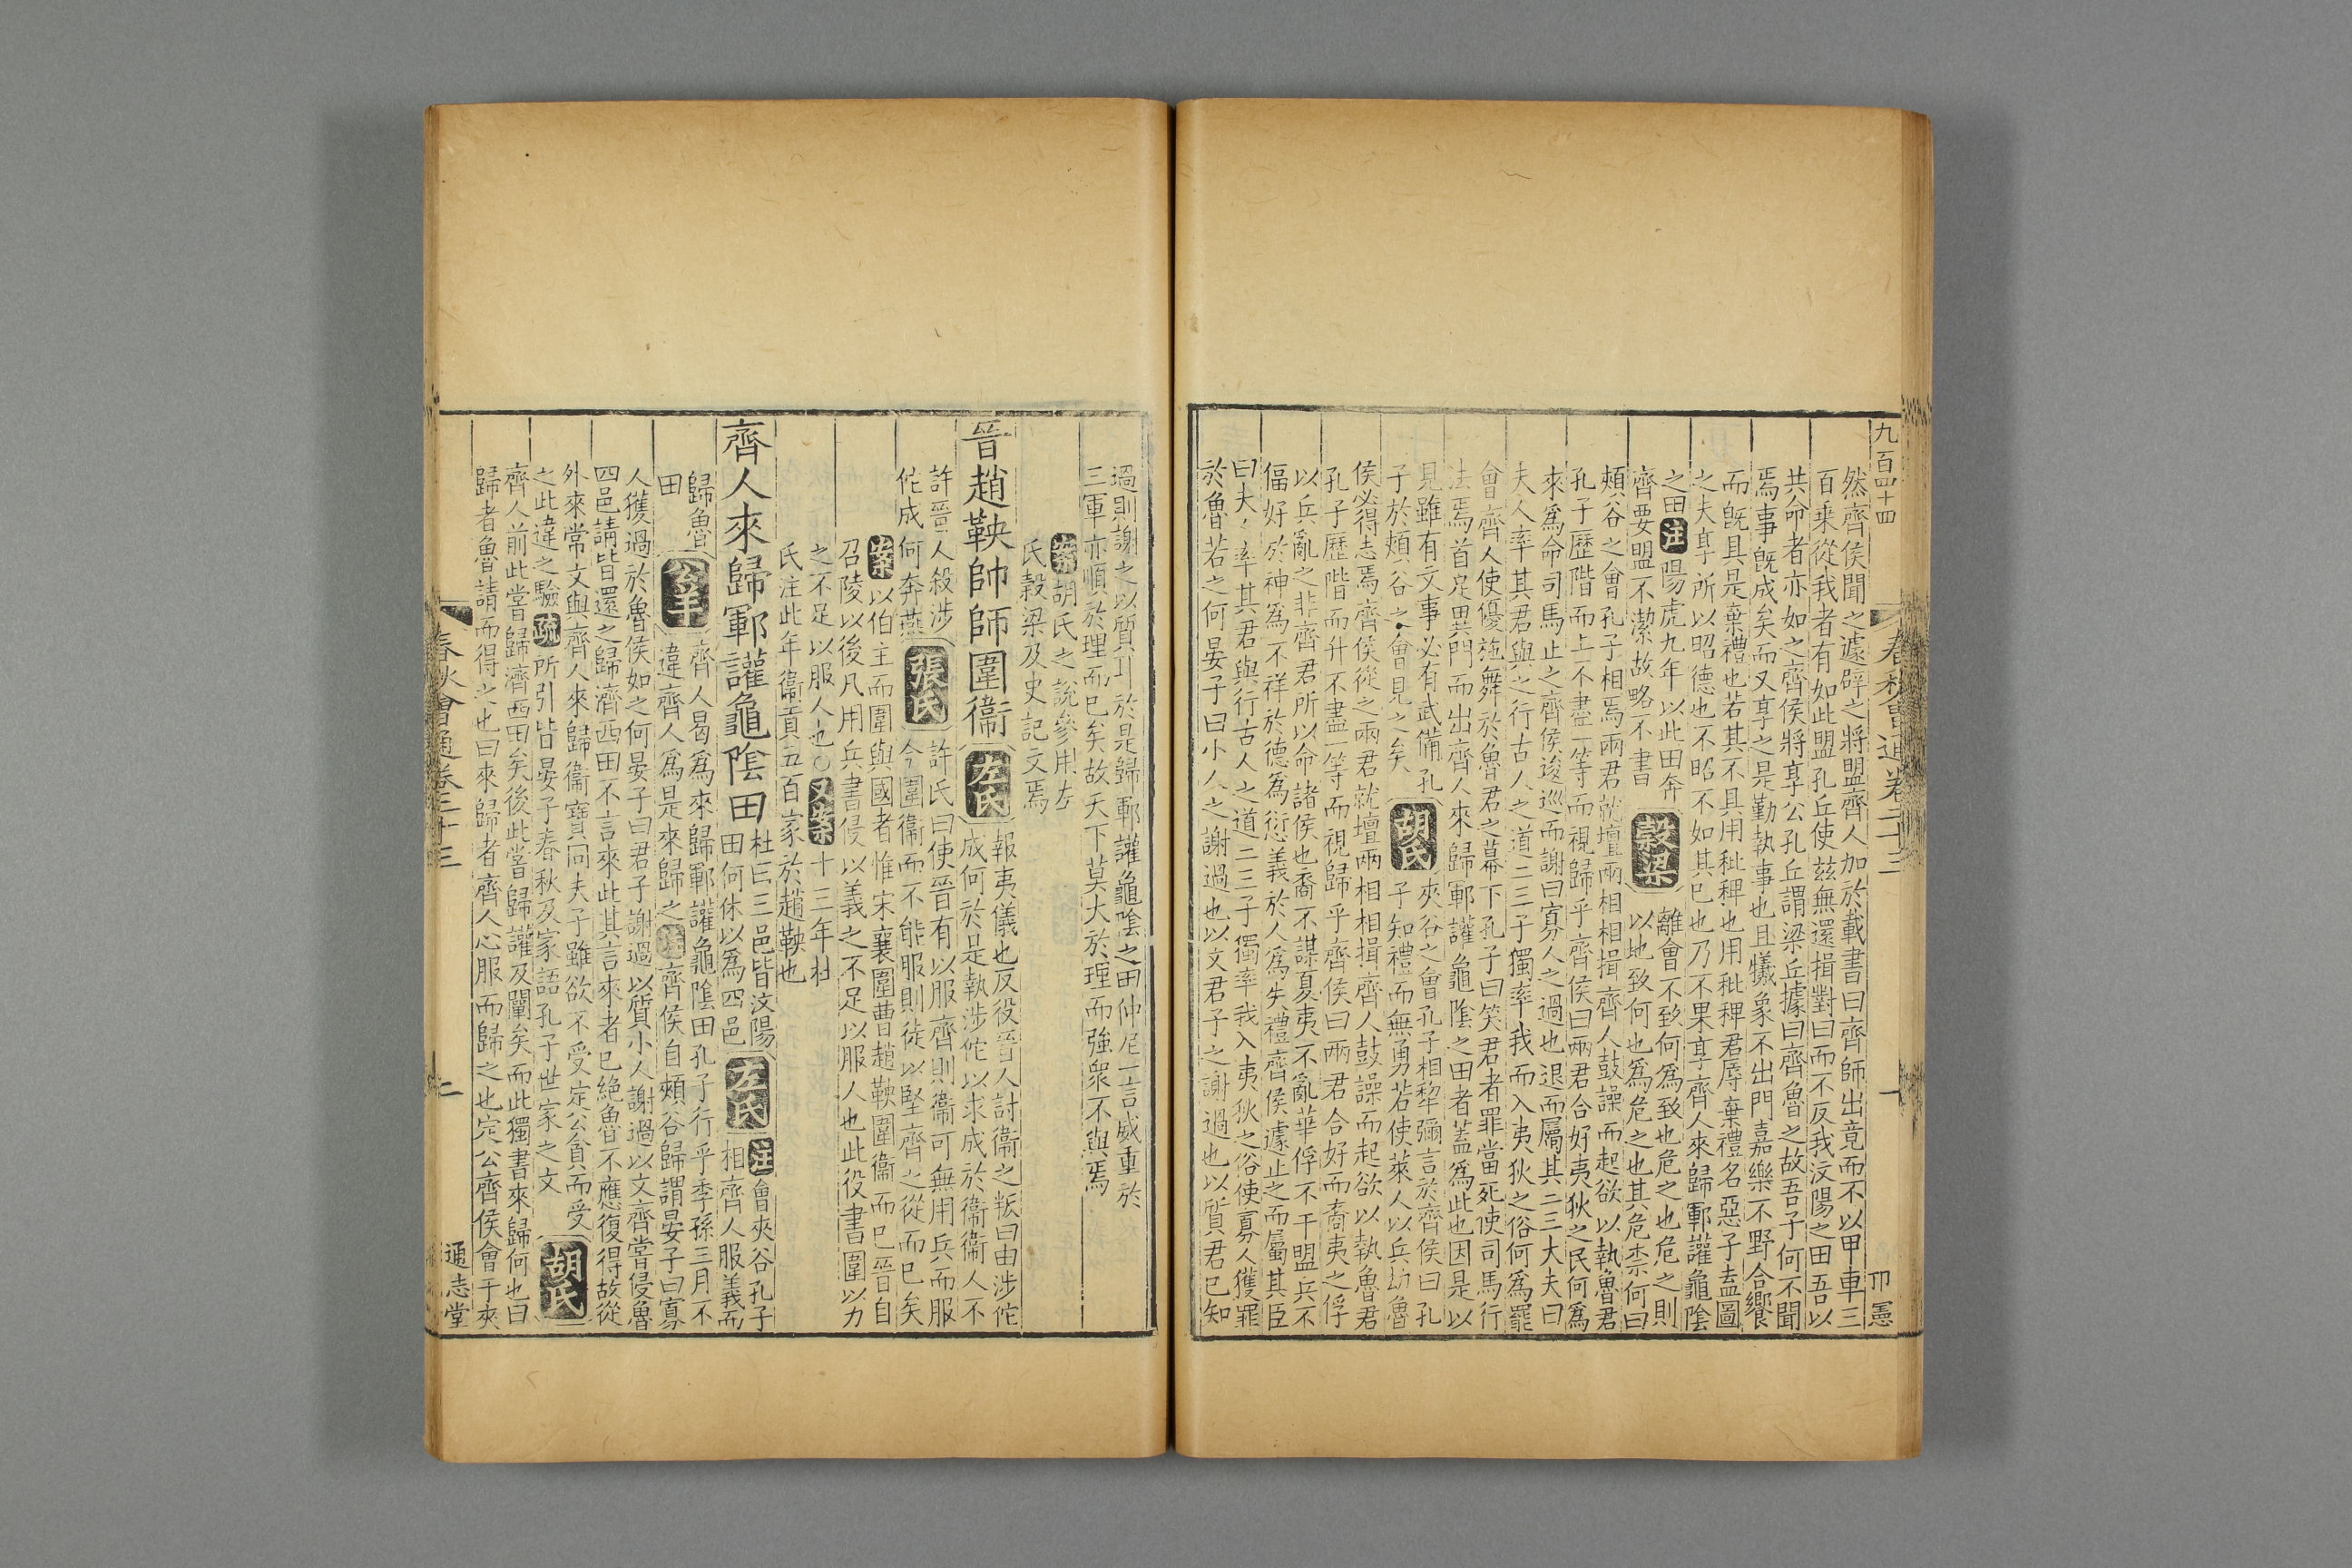 九百四十四
春秋會通卷二十三
一
然齊侯聞之遽辟之將盟齊人加於載書曰齊師出竟而不以甲車三
百乗從我者有如此盟孔丘使兹無還揖對曰而不反我汶陽之田吾以
共命者亦如之齊侯將享公孔丘謂梁丘據曰齊魯之故吾子何不聞
焉事旣成矣而又享之是勤執事也且犧象不出門嘉樂不野合饗
而旣具是棄禮也若其不具用秕稗也用秕稗君辱棄禮名惡子盍圖
之夫享所以昭德也不昭不如其已也乃不果享齊人來歸鄆讙龜陰
之田注陽虎九年以此田奔
齊要盟不潔故略不書
穀梁
離會不致何為致也危之也危之則
以地致何也為危之也其危柰何曰
頰谷之會孔子相焉兩君就壇兩相相揖齊人鼓譟而起欲以執魯君
孔子歷階而上不盡一等而視歸乎齊侯曰兩君合好夷狄之民何為
來為命司馬止之齊侯逡巡而謝曰寡人之過也退而屬其二三大夫曰
夫人率其君與之行古人之道二三子獨率我而入夷狄之俗何為罷
會齊人使優施舞於魯君之幕下孔子曰笑君者罪當死使司馬行
法焉首足異門而出齊人來歸鄆讙龜陰之田者蓋為此也因是以
見雖有文事必有武備孔
子於頰谷之會見之矣
胡氏
夾谷之會孔子相犂彌言於齊侯曰孔
子知禮而無勇若使萊人以兵劫魯
侯必得志焉齊侯從之兩君就壇兩相相揖齊人鼓譟而起欲以執魯君
孔子歷階而升不盡一等而視歸乎齊侯曰兩君合好而裔夷之俘
以兵亂之非齊君所以命諸侯也裔不謀夏夷不亂華俘不干盟兵不
偪好於神為不祥於德為愆義於人為失禮齊侯遽止之而屬其臣
曰夫人率其君與行古人之道二三子獨率我入夷狄之俗使寡人獲罪
於魯若之何晏子曰小人之謝過也以文君子之謝過也以質君已知
過則謝之以質以於是歸鄆讙龜陰之田仲尼一言威重於
三軍亦順於理而已矣故天下莫大於理而強衆不與焉
案胡氏之說參用左
氏穀梁及史記文焉
晉趙鞅帥師圍衞
左氏
報夷儀也反役晉人討衞之叛曰由涉佗
成何於是執涉佗以求成於衞衞人不
許晉人殺涉
佗成何奔燕
張氏
許氏曰使晉有以服齊則衞可無用兵而服
今圍衞而不能服則徒以堅齊之從而已矣
案以伯主而圍與國者惟宋襄圍曹趙鞅圍衞而已晉自
召陵以後凡用兵書侵以義之不足以服人也此役書圍以力
之不足以服人也〇又案十三年杜
氏注此年衞貢五百家於趙鞅也
齊人來歸鄆讙龜陰田
杜曰三邑皆汶陽
田何休以為四邑
左氏
注會夾谷孔子
相齊人服義而
歸魯
田
公羊
齊人曷為來歸鄆讙龜陰田孔子行乎季孫三月不
違齊人為是來歸之注齊侯自頰谷歸謂晏子曰寡
人獲過於魯侯如之何晏子曰君子謝過以質小人謝過以文齊嘗侵魯
四邑請皆還之歸濟西田不言來此其言來者已絶魯不應復得故從
外來常文與齊人來歸衞寶同夫子雖欲不受定公貪而受
之此違之驗疏所引皆晏子春秋及家語孔子世家之文
胡氏
齊人前此嘗歸濟西田矣後此嘗歸讙及闡矣而此獨書來歸何也曰
歸者魯請而得之也曰來歸者齊人心服而歸之也定公齊侯會于夾
春秋會通卷二十三
二
通志堂